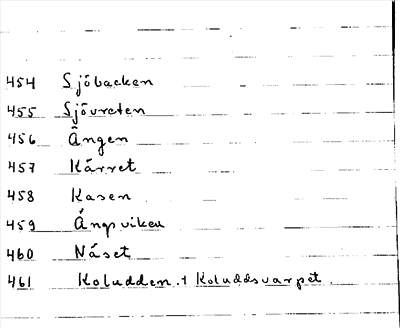 454 Sjöbacken
455 Sjövreten
456 Ängen
457 Kärret
458 Kasen
459 Ängsviken
460 Näset
461 Koludden + Koluddsvarpet